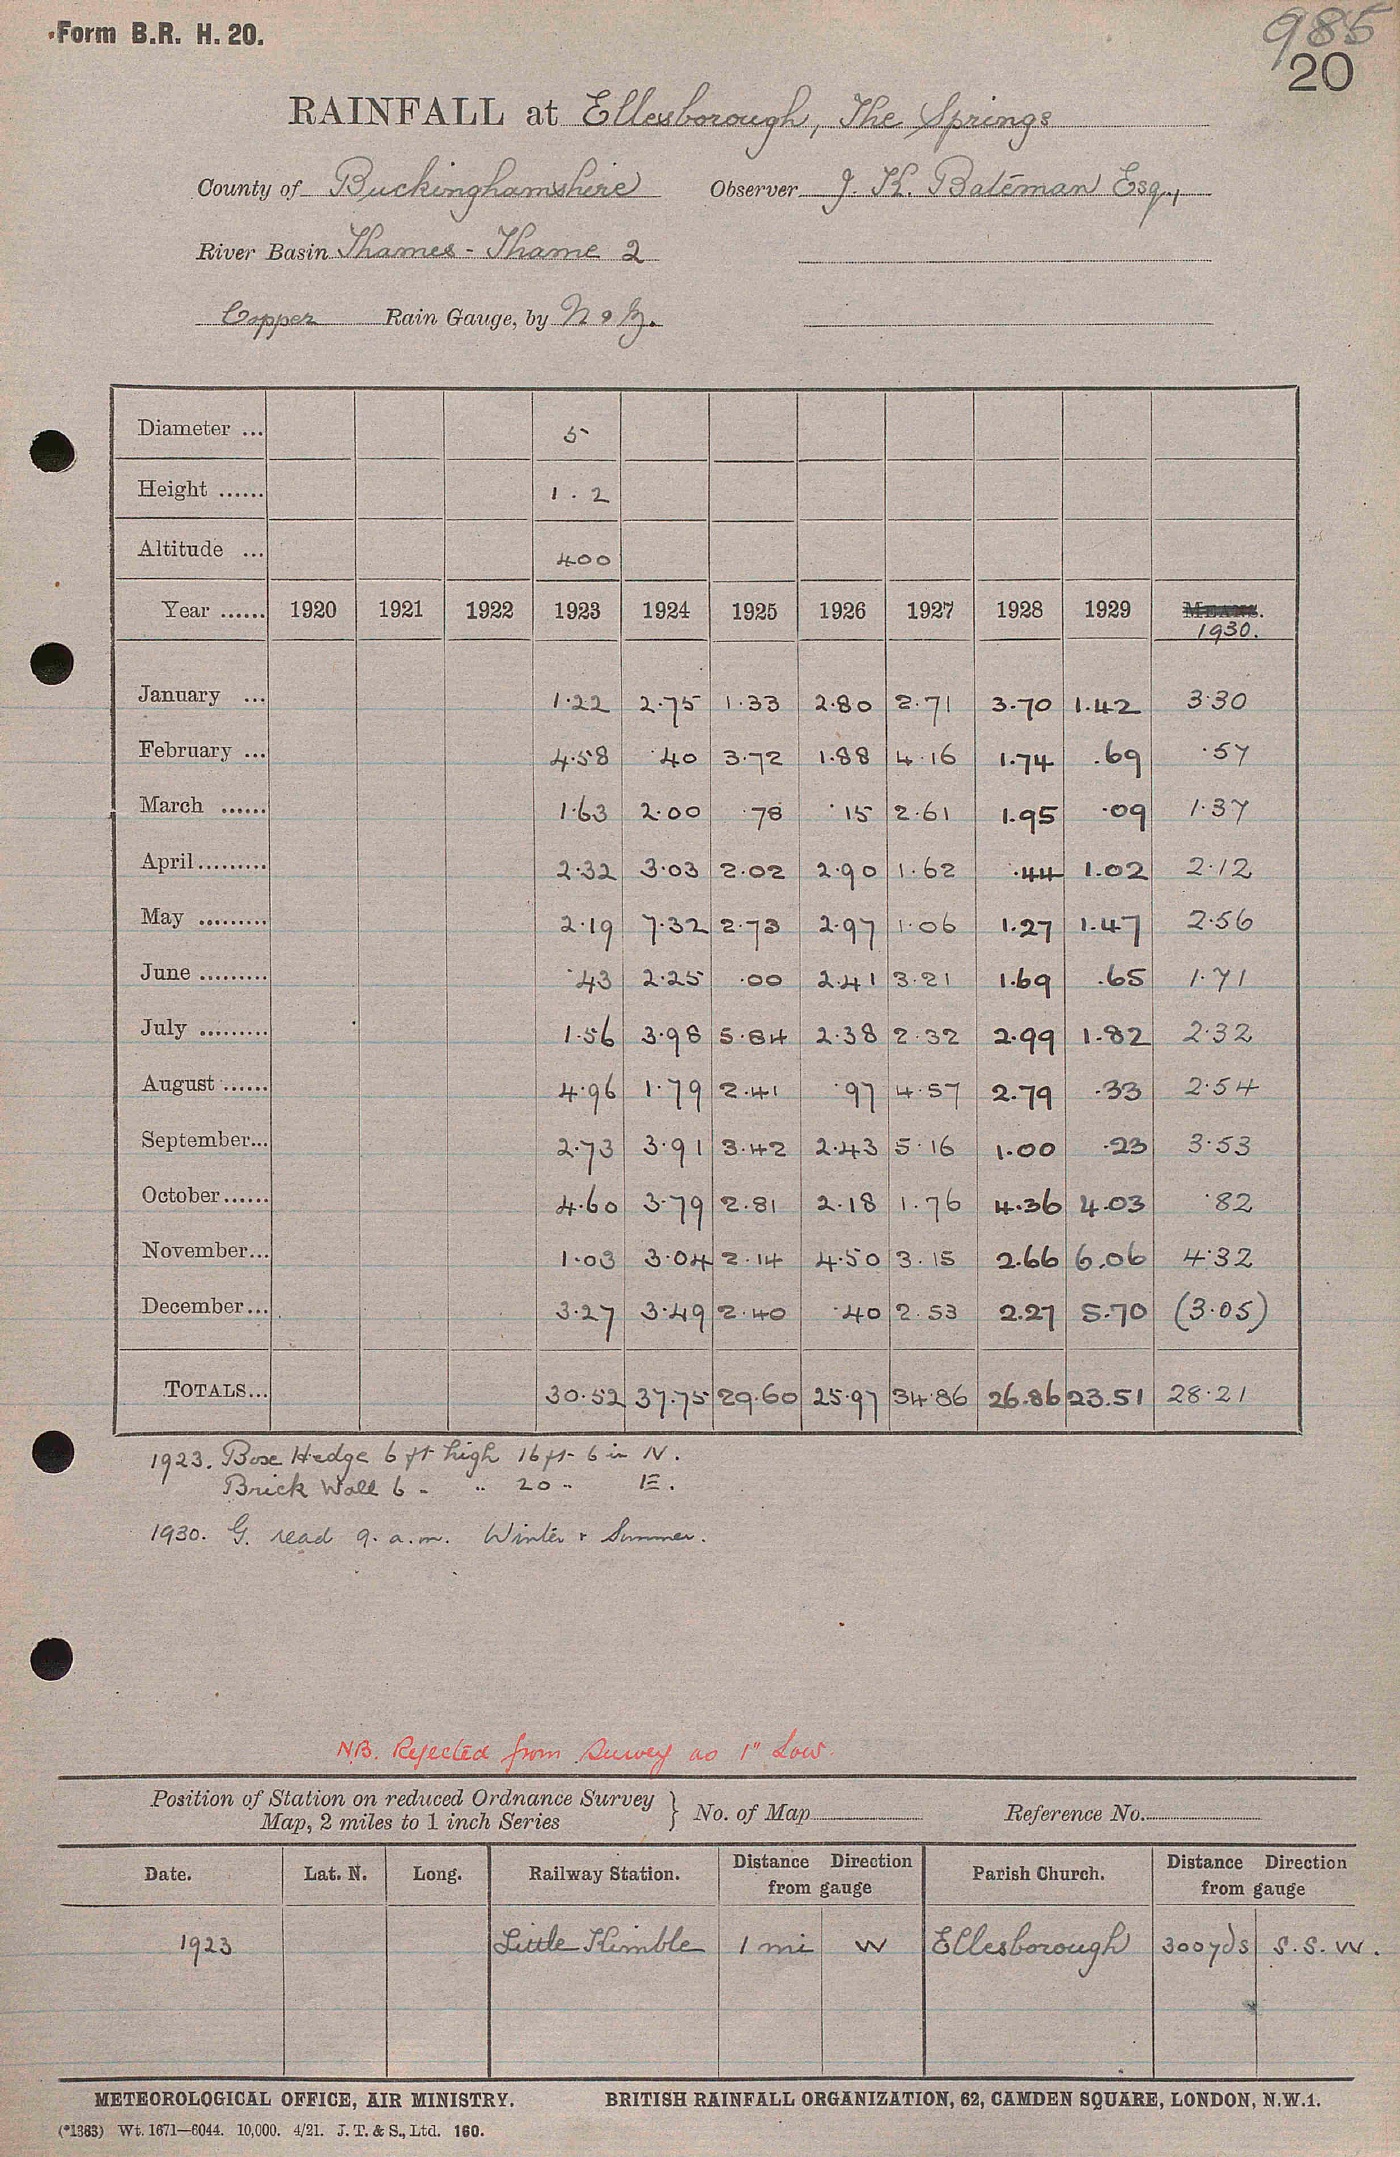 Form B.R. H. 20.
985
20
RAINFALL at Ellesborough, The Springs
County of Buckinghamshire Observer J. K. Bateman Esq.,
River Basin Thames - Thame 2
Copper Rain Gauge, by N & Z.
Diameter ... 5
Height ...... 1.2
Altitude ... 400
Year ...... 1920 1921 1922 1923 1924 1925 1926 1927 1928 1929 MEANS.
1930.
January ... 1.22 2.75 1.33 2.80 2.71 3.70 1.42 3.30
February ... 4.58 .40 3.72 1.88 4.16 1.74 .69 .57
March ...... 1.63 2.00 .78 .15 2.61 1.95 .09 1.37
April......... 2.32 3.03 2.02 2.90 1.62 .44 1.02 2.12
May ......... 2.19 7.32 2.73 2.97 1.06 1.27 1.47 2.56
June ......... .43 2.25 .00 2.41 3.21 1.69 .65 1.71
July ......... 1.56 3.98 5.84 2.38 2.32 2.99 1.82 2.32
August ...... 4.96 1.79 2.41 .97 4.57 2.79 .33 2.54
September... 2.73 3.91 3.42 2.43 5.16 1.00 .23 3.53
October...... 4.60 3.79 2.81 2.18 1.76 4.36 4.03 .82
November... 1.03 3.04 2.14 4.50 3.15 2.66 6.06 4.32
December... 3.27 3.49 2.40 .40 2.53 2.27 5.70 (3.05)
TOTALS... 30.52 37.75 29.60 25.97 34.86 26.86 23.51 28.21
1923. Box Hedge 6 ft high 16 ft 6 in N.
Brick Wall 6 " " 20 " E.
1930. G. read 9. a.m. Winter & Summer.
N.B. Rejected from Survey as 1" Low.
Position of Station on reduced Ordnance Survey
Map, 2 miles to 1 inch Series } No. of Map Reference No.
Date. Lat. N. Long. Railway Station. Distance Direction from gauge Parish Church. Distance Direction from gauge
1923 Little Kimble 1 mi W Ellesborough 300 yds S.S.W.
METEOROLOGICAL OFFICE, AIR MINISTRY. BRITISH RAINFALL ORGANIZATION, 62, CAMDEN SQUARE, LONDON, N.W.1.
(*1383) Wt. 1671—6044. 10,000. 4/21. J. T. & S., Ltd. 160.